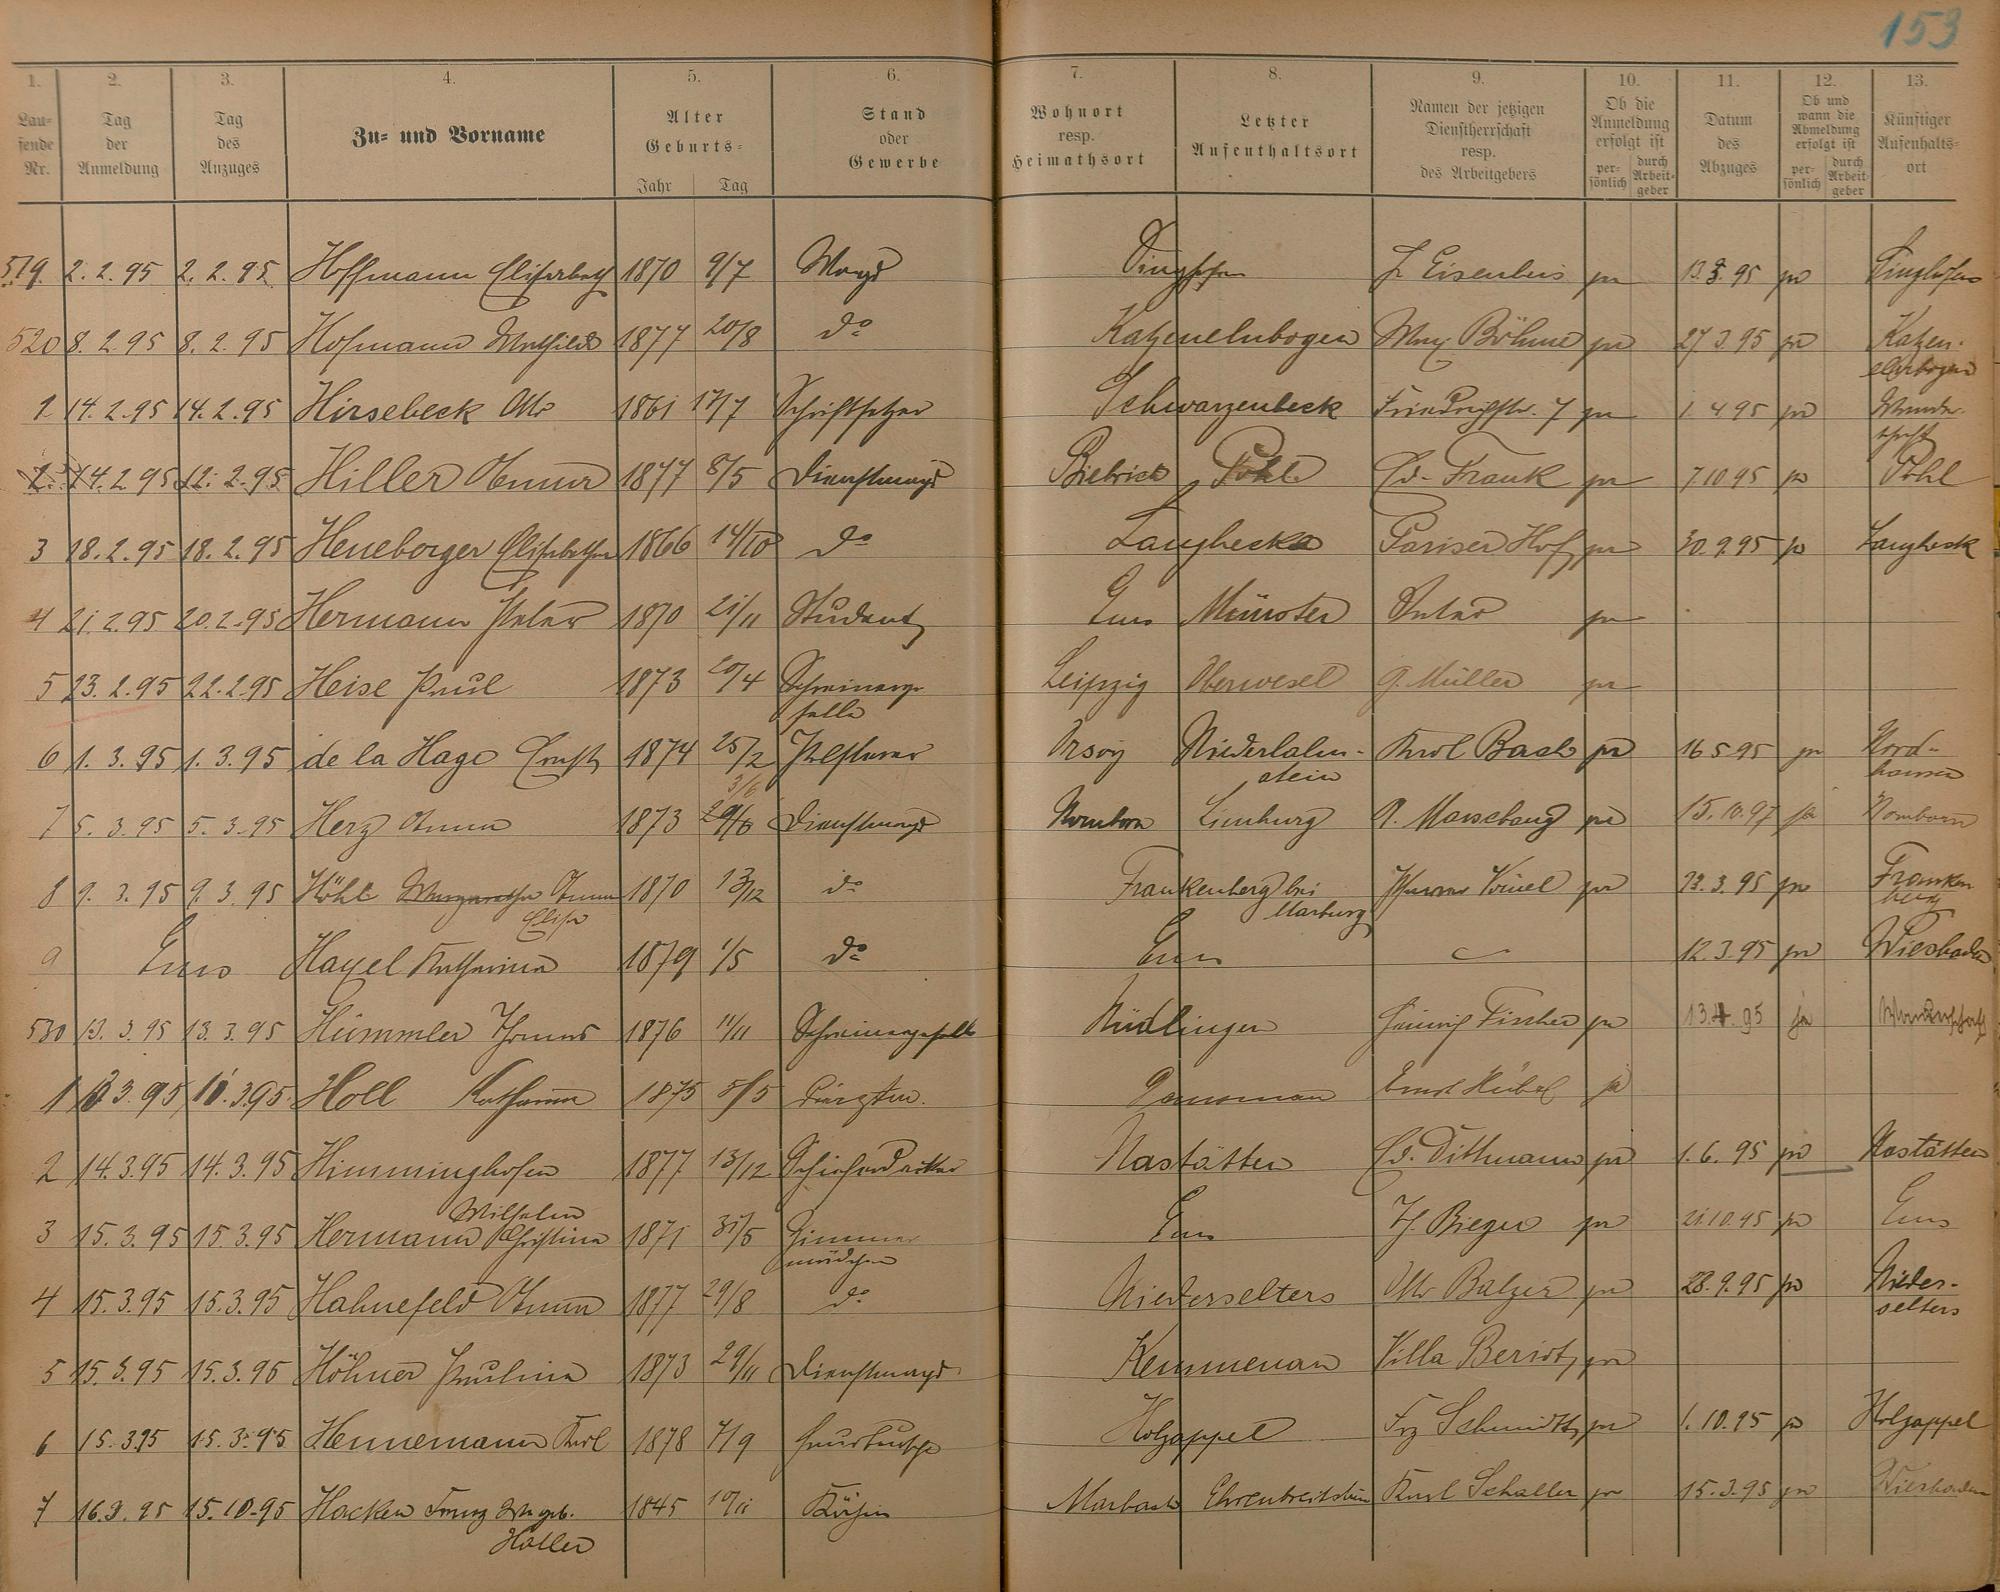 153
1. 2. 3. 4. 5. 6. 7. 8. 9. 10. 11. 12. 13.
Laufende Nr. Tag der Anmeldung Tag des Anzuges Zu- und Vorname Alter Geburts- Jahr Tag Stand oder Gewerbe Wohnort resp. Heimathsort Letzter Aufenthaltsort Namen der jetzigen Dienstherrschaft resp. des Arbeitgebers Ob die Anmeldung erfolgt ist persönlich durch Arbeitgeber Datum des Abzuges Ob und wann die Abmeldung erfolgt ist persönlich durch Arbeitgeber Künftiger Aufenthaltsort
519. 2. 2. 95 2. 2. 95 Hoffmann Elisabeth 1870 9/7 Magd Singhofen Eisenbeis ja 95 ja Singhofen
520 8. 2. 95 8. 2. 95 Hofmann Mathilde 1877 20/8 do Katzenelnbogen Max Böhme ja 27.3.95 ja Katzen-
elnbogen
1 14.2.95 14.2.95 Hirsebeck Otto 1861 17/7 Schriftsetzer Schwarzenbeck Friedrichstr. 7 ja 1.4.95 ja Wander-
schaft
2. 14.2.95 12.2.95 Hiller Anna 1877 8/5 Dienstmagd Biebrich Pohl Ed. Frank ja 7.10.95 ja Pohl
3 18.2.95 18.2.95 Heneberger 1866 14/10 do Langhecke Pariser Hof ja 30.9.95 ja Langheck
4 21.2.95 20.2.95 Hermann Peter 1870 21/11 Student Ems Münster Vater ja
5 23.2.95 22.2.95 Heise Paul 1873 20/4 Schreinerge-
selle Leipzig Oberwesel G. Müller ja
6 1.3.95 1.3.95 de la Hage Ernst 1874 25/2 Orsoy Niederlahn-
stein Karl Bach ja 16.5.95 ja Nord-
hausen
3/6
7 5.3.95 5.3.95 Herz Anna 1873 29/6 Dienstmagd Nomborn Limburg ja 15.10.97 ja Nomborn
8 9.3.95 9.3.95 Höhl Margaretha Anna 1870 13/12 do Frankenberg bei
Marburg Pfarrer ja 23.3.95 ja Franken
berg
Elise
9 Ems Hayel Katharina 1879 1/5 do Ems 12.3.95 ja Wiesbaden
530 13.3.95 13.3.95 Hümmler Thomas 1876 11/11 Schreinergeselle Nüdlingen Heinrich Fischer ja 13.4.95 ja Wanderschaft
1 3.95 3.95 Holl Katharina 1875 5/5 Ernst Hübel ja
2 14.3.95 14.3.95 Himminghofen 1877 13/12 Schieferdecker Nastätten Ed. Dittmann ja 1.6.95 ja Nastätten
Wilhelm
3 15.3.95 15.3.95 Hermann Christine 1871 31/5 Zimmer
mädchen Ems Bieger ja 21.10.95 ja Ems
4 15.3.95 15.3.95 Hahnefeld Anna 1877 29/8 do Niederselters Otto Balzer ja 28.9.95 ja Nieder-
selters
5 15.3.95 15.3.95 Höhner Pauline 1873 29/11 Dienstmagd Kemmenau Villa Beriot ja
6 15.3.95 15.3.95 Hennemann Karl 1878 7/9 Hausbursche Holzappel Frz Schmidt ja 1.10.95 ja Holzappel
7 16.3.95 15.10.95 Hacken Franz Ww geb.
Haller 1845 10/11 Köchin Marbach Ehrenbreitstein Karl Schaller ja 15.3.95 ja Wiesbaden